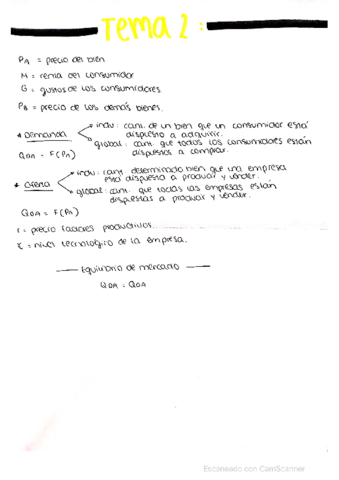 Tema 2:
PA = precio del bien
M = renta del consumidor
G = gustos de los consumidores.
PB = precio de los demás bienes.
* Demanda
indiv: cant. de un bien que un consumidor está dispuesto a adquirir.
global: cant. que todos los consumidores están dispuestos a comprar.
QDA = F(PA)
* Oferta
indiv: cant. determinado bien que una empresa está dispuesta a producir y vender.
global: cant. que todas las empresas están dispuestas a producir y vender.
QOA = F(PA)
r = precio factores productivos.
τ = nivel tecnológico de la empresa.
Equilibrio de mercado
QDA = QOA
Escaneado con CamScanner